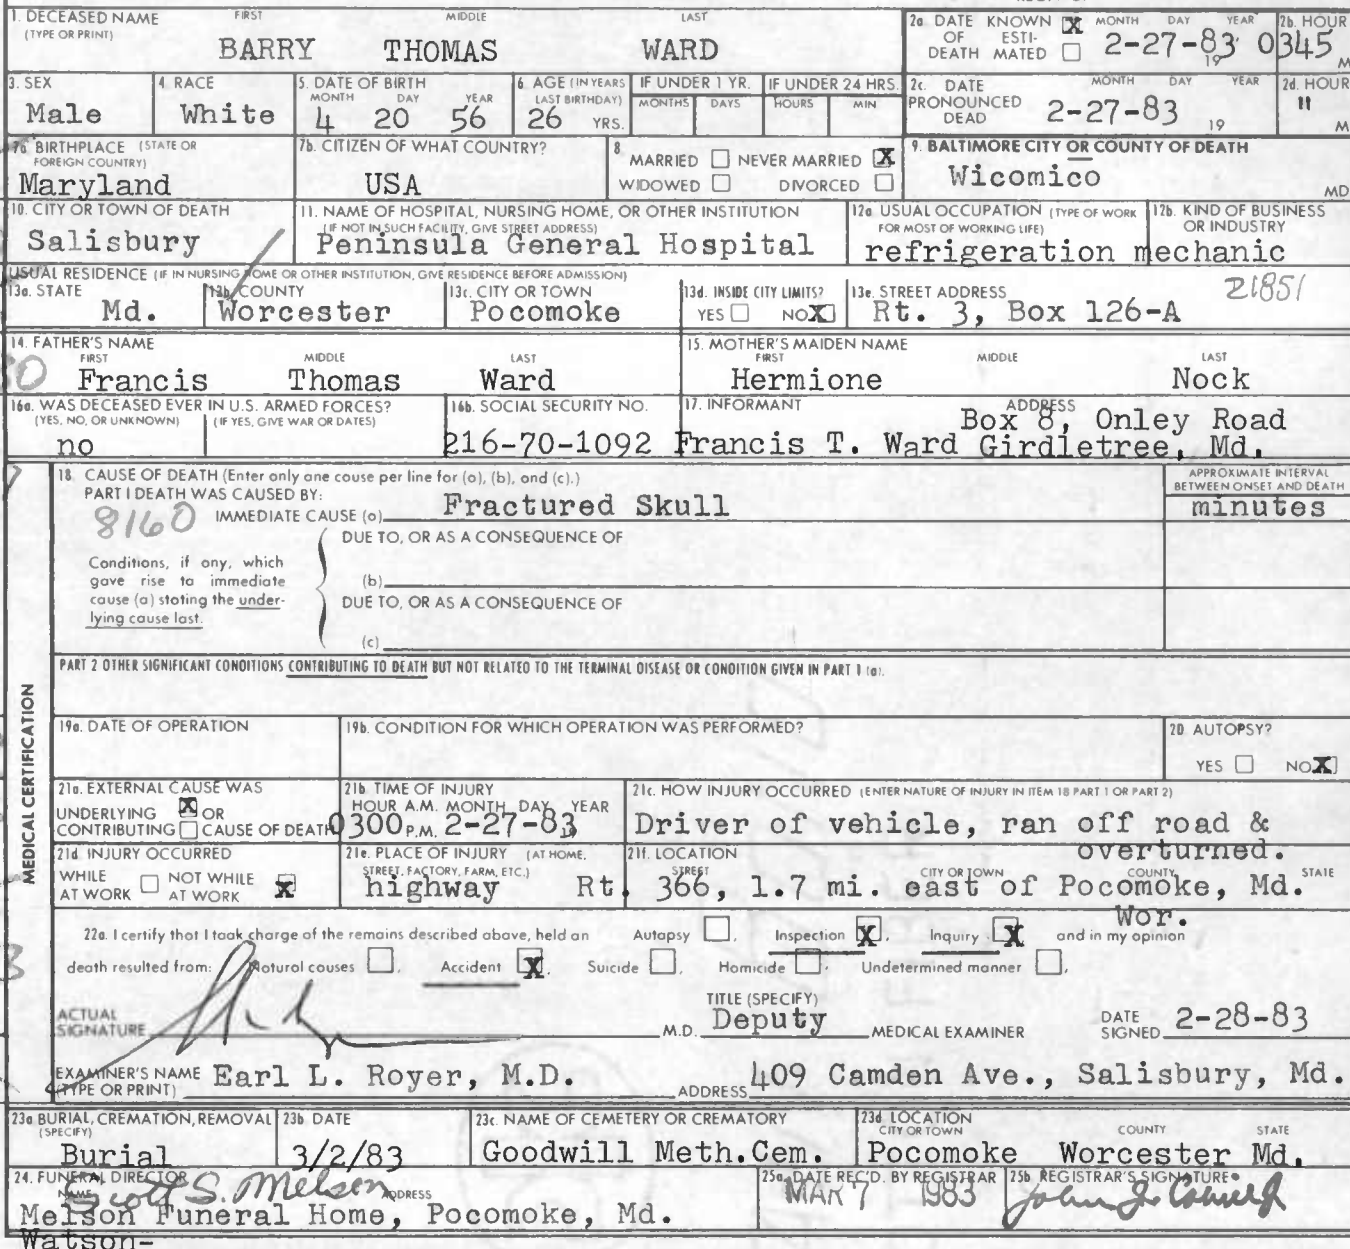 1. DECEASED NAME FIRST MIDDLE LAST
(TYPE OR PRINT)
BARRY THOMAS WARD
2a. DATE KNOWN X MONTH DAY YEAR
OF ESTI-
DEATH MATED
2-27-83 19
2b. HOUR
0345 M
3. SEX
Male
4. RACE
White
5. DATE OF BIRTH
MONTH DAY YEAR
4 20 56
6. AGE (IN YEARS
LAST BIRTHDAY)
26 YRS.
IF UNDER 1 YR.
MONTHS DAYS
IF UNDER 24 HRS.
HOURS MIN
2c. DATE MONTH DAY YEAR
PRONOUNCED
DEAD 2-27-83 19
2d. HOUR
" M
7a. BIRTHPLACE (STATE OR
FOREIGN COUNTRY)
Maryland
7b. CITIZEN OF WHAT COUNTRY?
USA
8.
MARRIED NEVER MARRIED X
WIDOWED DIVORCED
9. BALTIMORE CITY OR COUNTY OF DEATH
Wicomico MD
10. CITY OR TOWN OF DEATH
Salisbury
11. NAME OF HOSPITAL, NURSING HOME, OR OTHER INSTITUTION
(IF NOT IN SUCH FACILITY, GIVE STREET ADDRESS)
Peninsula General Hospital
12a. USUAL OCCUPATION (TYPE OF WORK
FOR MOST OF WORKING LIFE)
12b. KIND OF BUSINESS
OR INDUSTRY
refrigeration mechanic
USUAL RESIDENCE (IF IN NURSING HOME OR OTHER INSTITUTION, GIVE RESIDENCE BEFORE ADMISSION)
13a. STATE
Md.
13b. COUNTY
Worcester
13c. CITY OR TOWN
Pocomoke
13d. INSIDE CITY LIMITS?
YES NO X
13e. STREET ADDRESS 21851
Rt. 3, Box 126-A
14. FATHER'S NAME
FIRST MIDDLE LAST
Francis Thomas Ward
15. MOTHER'S MAIDEN NAME
FIRST MIDDLE LAST
Hermione Nock
16a. WAS DECEASED EVER IN U.S. ARMED FORCES?
(YES, NO, OR UNKNOWN) (IF YES, GIVE WAR OR DATES)
no
16b. SOCIAL SECURITY NO.
216-70-1092
17. INFORMANT ADDRESS
Box 8, Onley Road
Francis T. Ward Girdletree, Md.
18. CAUSE OF DEATH (Enter only one cause per line for (a), (b), and (c).)
PART I DEATH WAS CAUSED BY:
8160 IMMEDIATE CAUSE (a) Fractured Skull
APPROXIMATE INTERVAL
BETWEEN ONSET AND DEATH
minutes
DUE TO, OR AS A CONSEQUENCE OF
Conditions, if any, which
gave rise to immediate
cause (a) stating the under-
lying cause last.
(b)
DUE TO, OR AS A CONSEQUENCE OF
(c)
PART 2 OTHER SIGNIFICANT CONDITIONS CONTRIBUTING TO DEATH BUT NOT RELATED TO THE TERMINAL DISEASE OR CONDITION GIVEN IN PART 1 (a).
MEDICAL CERTIFICATION
19a. DATE OF OPERATION
19b. CONDITION FOR WHICH OPERATION WAS PERFORMED?
20. AUTOPSY?
YES NO X
21a. EXTERNAL CAUSE WAS
UNDERLYING X OR
CONTRIBUTING CAUSE OF DEATH
21b. TIME OF INJURY
HOUR A.M. MONTH DAY YEAR
0300 P.M. 2-27-83 19
21c. HOW INJURY OCCURRED (ENTER NATURE OF INJURY IN ITEM 18 PART 1 OR PART 2)
Driver of vehicle, ran off road &
overturned.
21d. INJURY OCCURRED
WHILE NOT WHILE
AT WORK AT WORK X
21e. PLACE OF INJURY (AT HOME,
STREET, FACTORY, FARM, ETC.)
highway
21f. LOCATION
STREET CITY OR TOWN COUNTY STATE
Rt. 366, 1.7 mi. east of Pocomoke, Md.
Wor.
22a. I certify that I took charge of the remains described above, held an Autopsy , Inspection X, Inquiry X and in my opinion
death resulted from: Natural causes , Accident X, Suicide , Homicide , Undetermined manner ,
ACTUAL
SIGNATURE M.D.
TITLE (SPECIFY)
Deputy MEDICAL EXAMINER
DATE
SIGNED 2-28-83
EXAMINER'S NAME
(TYPE OR PRINT) Earl L. Royer, M.D.
ADDRESS 409 Camden Ave., Salisbury, Md.
23a. BURIAL, CREMATION, REMOVAL
(SPECIFY)
Burial
23b. DATE
3/2/83
23c. NAME OF CEMETERY OR CREMATORY
Goodwill Meth.Cem.
23d. LOCATION
CITY OR TOWN COUNTY STATE
Pocomoke Worcester Md.
24. FUNERAL DIRECTOR
NAME Scott S. Melson ADDRESS
Melson Funeral Home, Pocomoke, Md.
Watson-
25a. DATE REC'D. BY REGISTRAR
MAR 7 1983
25b. REGISTRAR'S SIGNATURE